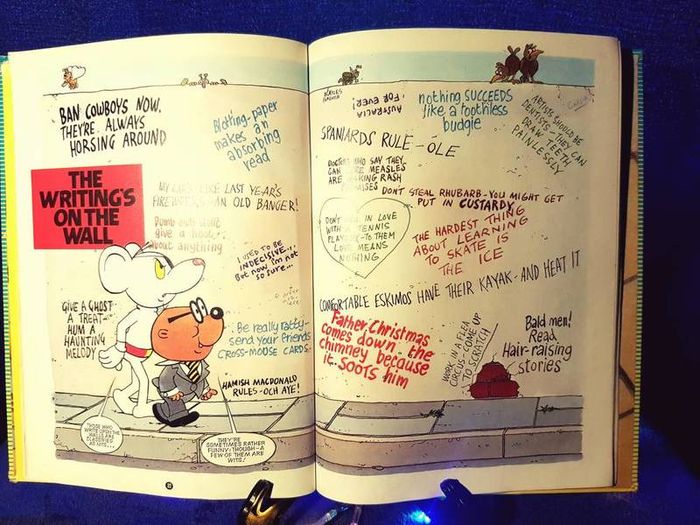 BAN COWBOYS NOW.
THEY'RE ALWAYS
HORSING AROUND
Blotting-paper
makes an
absorbing
read
THE
WRITING'S
ON THE
WALL
MY CAR'S LIKE LAST YEAR'S
FIREWORKS - AN OLD BANGER!
Dumb owls don't
give a hoot
about anything
I USED TO BE
INDECISIVE...
But now I'm not
so sure...
GIVE A GHOST
A TREAT-
HUM A
HAUNTING
MELODY
Be really ratty-
send your friends
CROSS-MOUSE CARDS.
HAMISH MACDONALD
RULES-OCH AYE!
THOSE WHO
WRITE UPON THE
WALLS ARE
CLASSIFIED
AS NITS...
THEY'RE
SOMETIMES RATHER
FUNNY, THOUGH-A
FEW OF THEM ARE
WITS!
AUSTRALIA
FOR EVER!
nothing SUCCEEDS
like a toothless
budgie
ARTISTS SHOULD BE
DENTISTS - THEY CAN
DRAW TEETH
PAINLESSLY
SPANIARDS RULE - OLE
DOCTORS WHO SAY THEY
CAN CURE MEASLES
ARE MAKING RASH
PROMISES
DON'T STEAL RHUBARB-YOU MIGHT GET
PUT IN CUSTARDY
DON'T FALL IN LOVE
WITH A TENNIS
PLAYER-TO THEM
LOVE MEANS
NOTHING
THE HARDEST THING
ABOUT LEARNING
TO SKATE IS
THE ICE
COMFORTABLE ESKIMOS HAVE THEIR KAYAK-AND HEAT IT
Father Christmas
comes down the
chimney because
it SOOTS him
WORK IN A FLEA
CIRCUS-COME UP
TO SCRATCH
Bald men!
Read
Hair-raising
stories